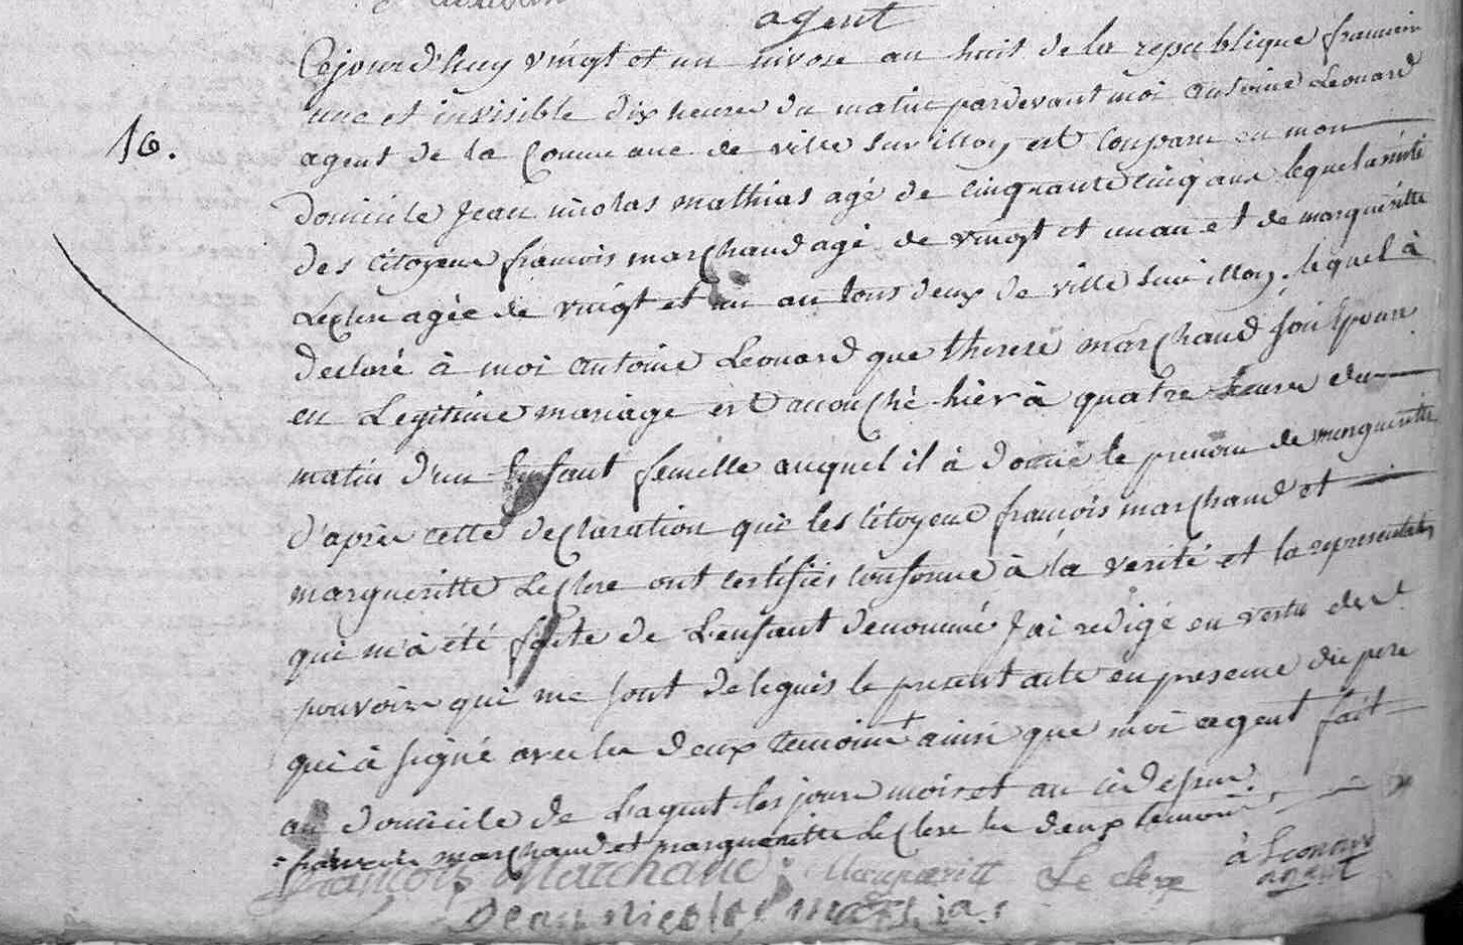 agent
Cejourd'huy vingt et un nivose an huit de la republique francois
une et invisible dix heures du matin pardevant moi antoine Leonard
16.
agent de la Commune de ville sur illon est comparu en mon
domicile Jean nicolas mathias agé de cinquante cinq ans lequel assisté
des citoyens francois marchand agé de vingt et un an et de margueritte
Leclere agée de vingt et un an tous deux de ville sur illon, lequel à
declaré à moi antoine Leonard que therese marchand son Epouse
en Legitime mariage est acouché hier à quatre heures du
matin d'un Enfant femille auquel il à donné le prenom de margueritte
d'après cette declaration que les citoyens francois marchand et
margueritte Leclere ont certifiés conforme à la verité et la representation
qui m'à été faite de L'enfant denommé J'ai redigé en vertu des
pouvoirs qui me sont delegués le present acte en presence du pere
qui à signé avec les deux temoins ainsi que moi agent fait
au domicile de L'agent les jours mois et an ci dessus.
= francois marchand et margueritte Leclere les deux temoins
francois Marchand Margueritt Le clere à Leonard
agent
Jean Nicolas mathias